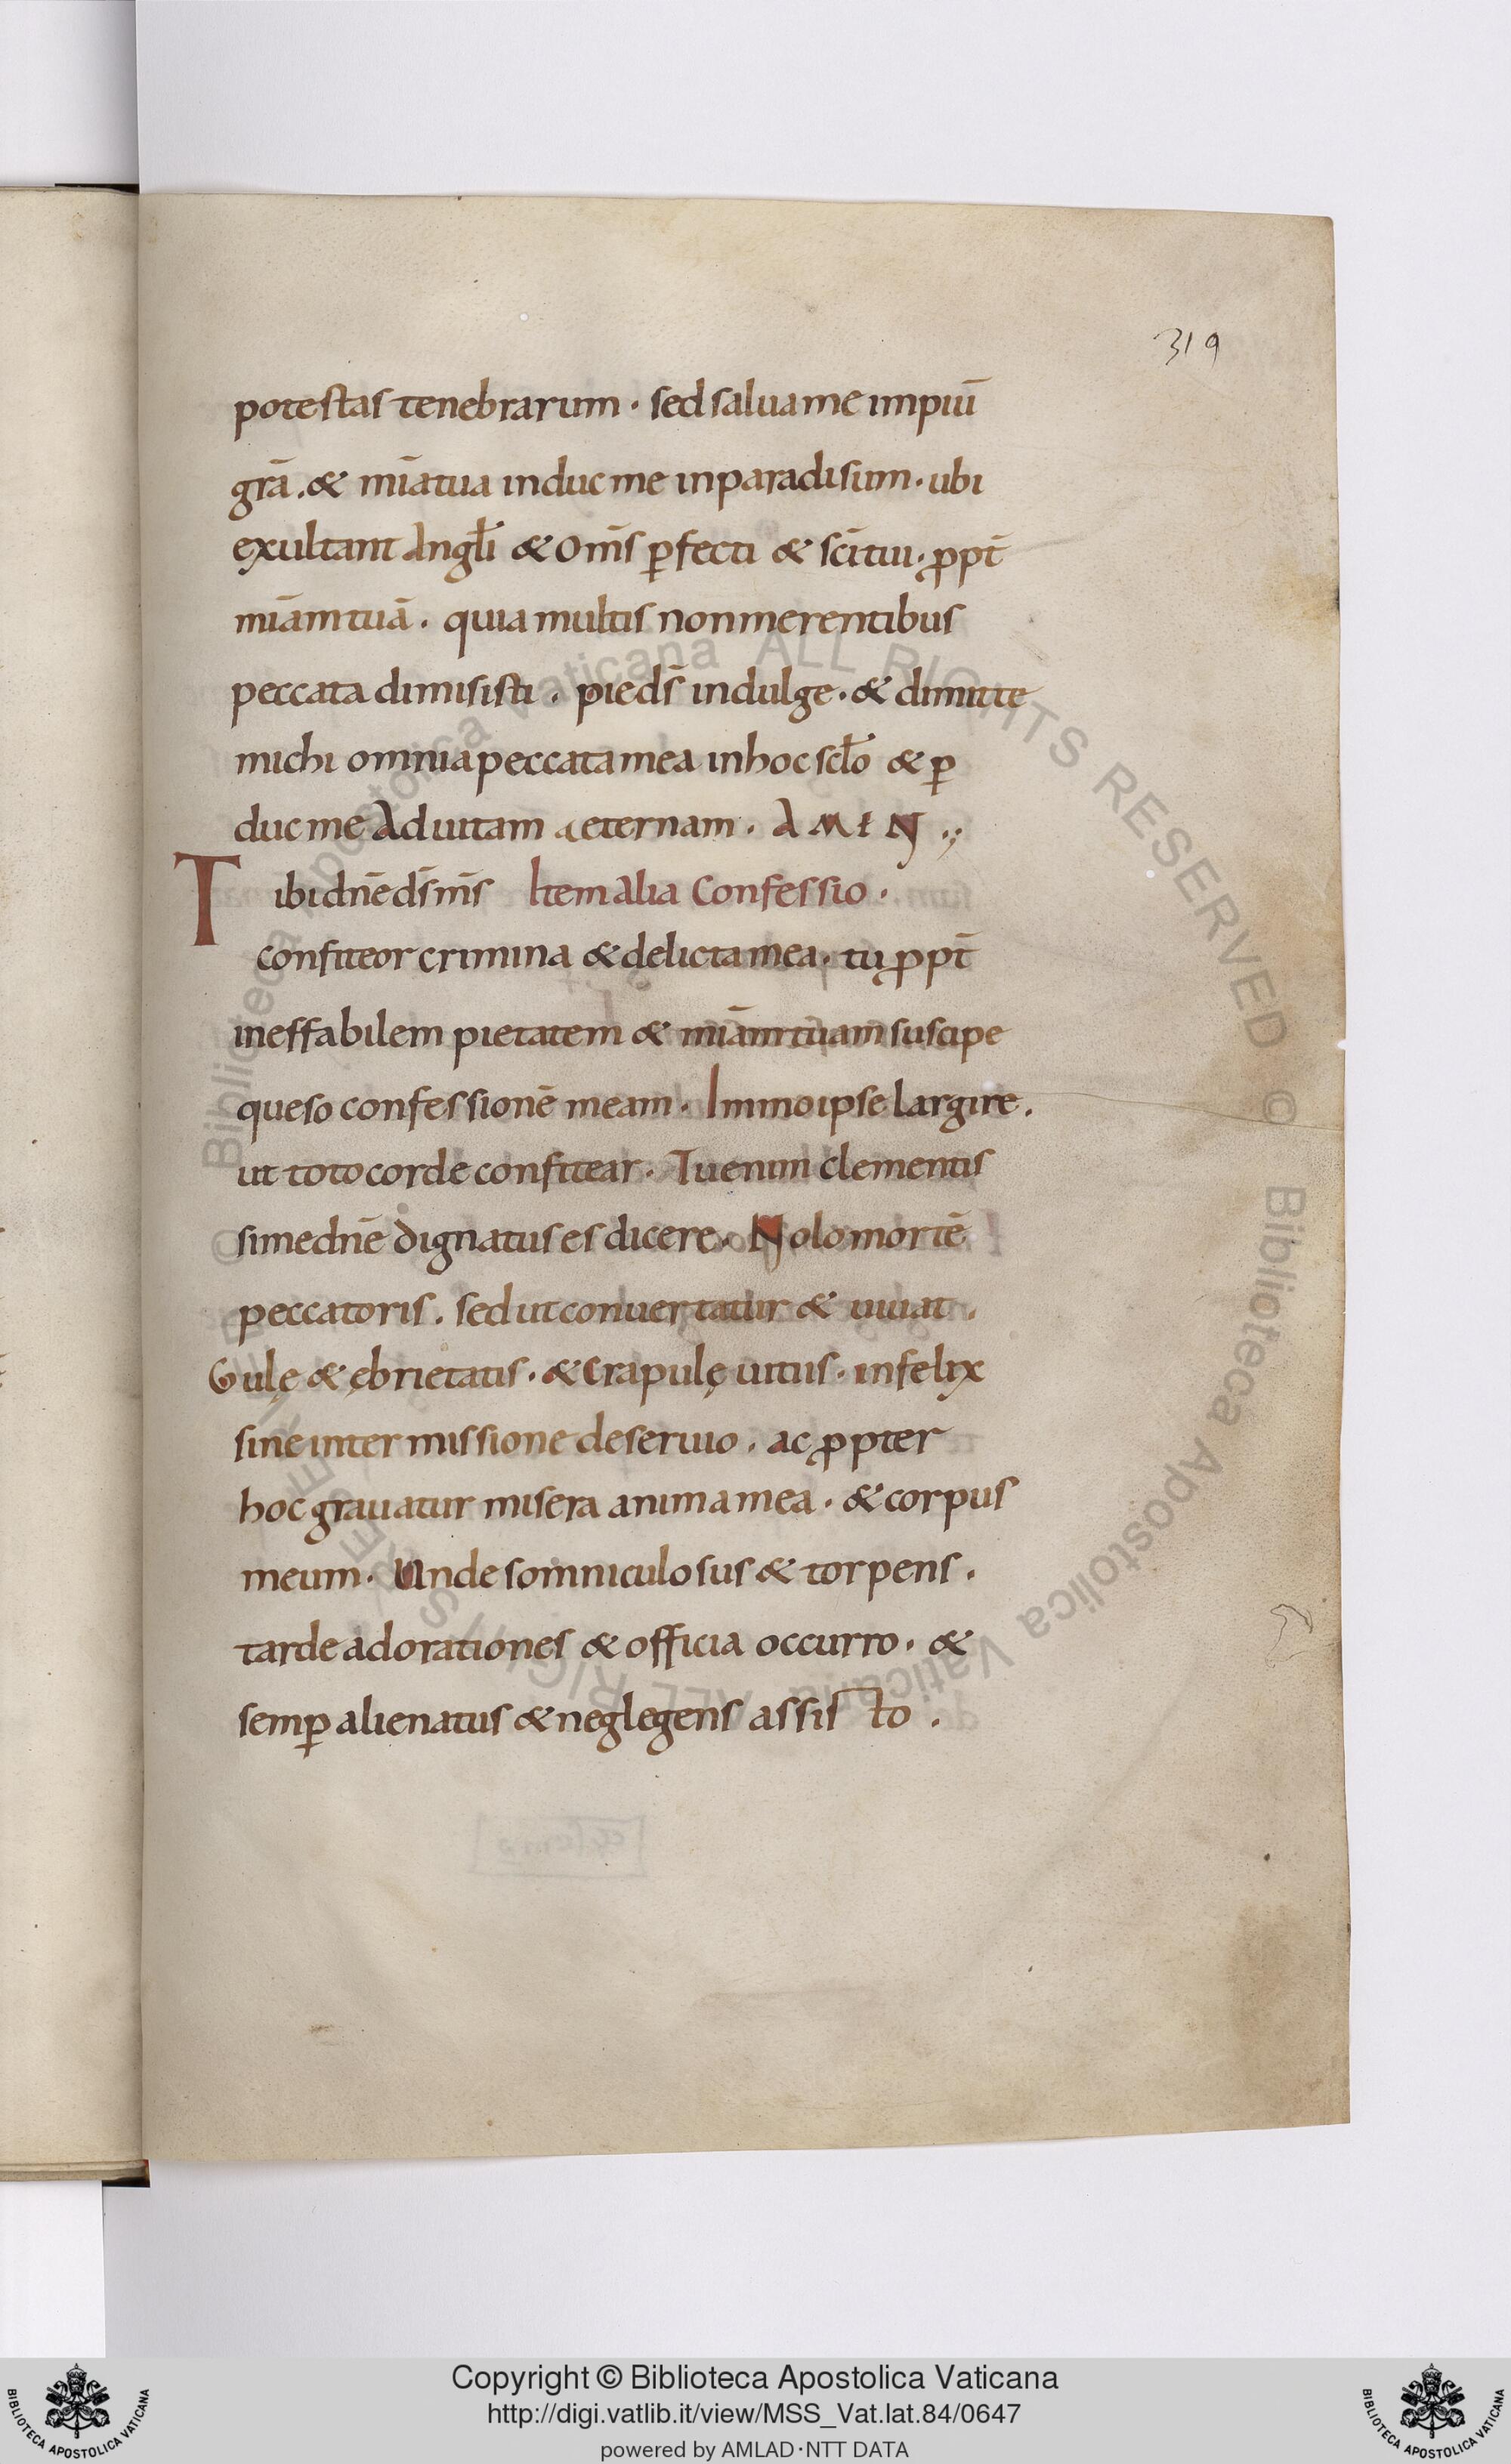 319
potestas tenebrarum · sed salua me impiū
grā . & mīa tua induc me in paradisum · ubi
exultant Angłi & om̄s ꝑfecti & sc̄i tui · ꝓpt̄
mīam tuā . quia multis non merentibus
peccata dimisisti . pie ds̄ indulge · & dimitte
michi omnia peccata mea in hoc scło & ꝑ
duc me Ad uitam aeternam . AMEN .,
Tibi dn̄e ds̄ ms̄ Item Alia Confessio .
confiteor crimina & delicta mea . tu ꝓpt̄
ineffabilem pietatem & mīam tuam suscipe
queso confessionē meam . Immo ipse largire .
ut toto corde confitear . Tu enim clementis
sime dn̄e dignatus es dicere . Nolo mortē
peccatoris . sed ut conuertatur & uiuat .
Gulę & ębrietatis . & Crapulę uitiis . infelix
sine intermissione deseruio . ac ꝓpter
hoc grauatur misera anima mea . & corpus
meum . Unde somniculosus & torpens .
tarde ad orationes & officia occurro . &
semꝑ alienatus & neglegens assisto .
Copyright © Biblioteca Apostolica Vaticana
http://digi.vatlib.it/view/MSS_Vat.lat.84/0647
powered by AMLAD·NTT DATA